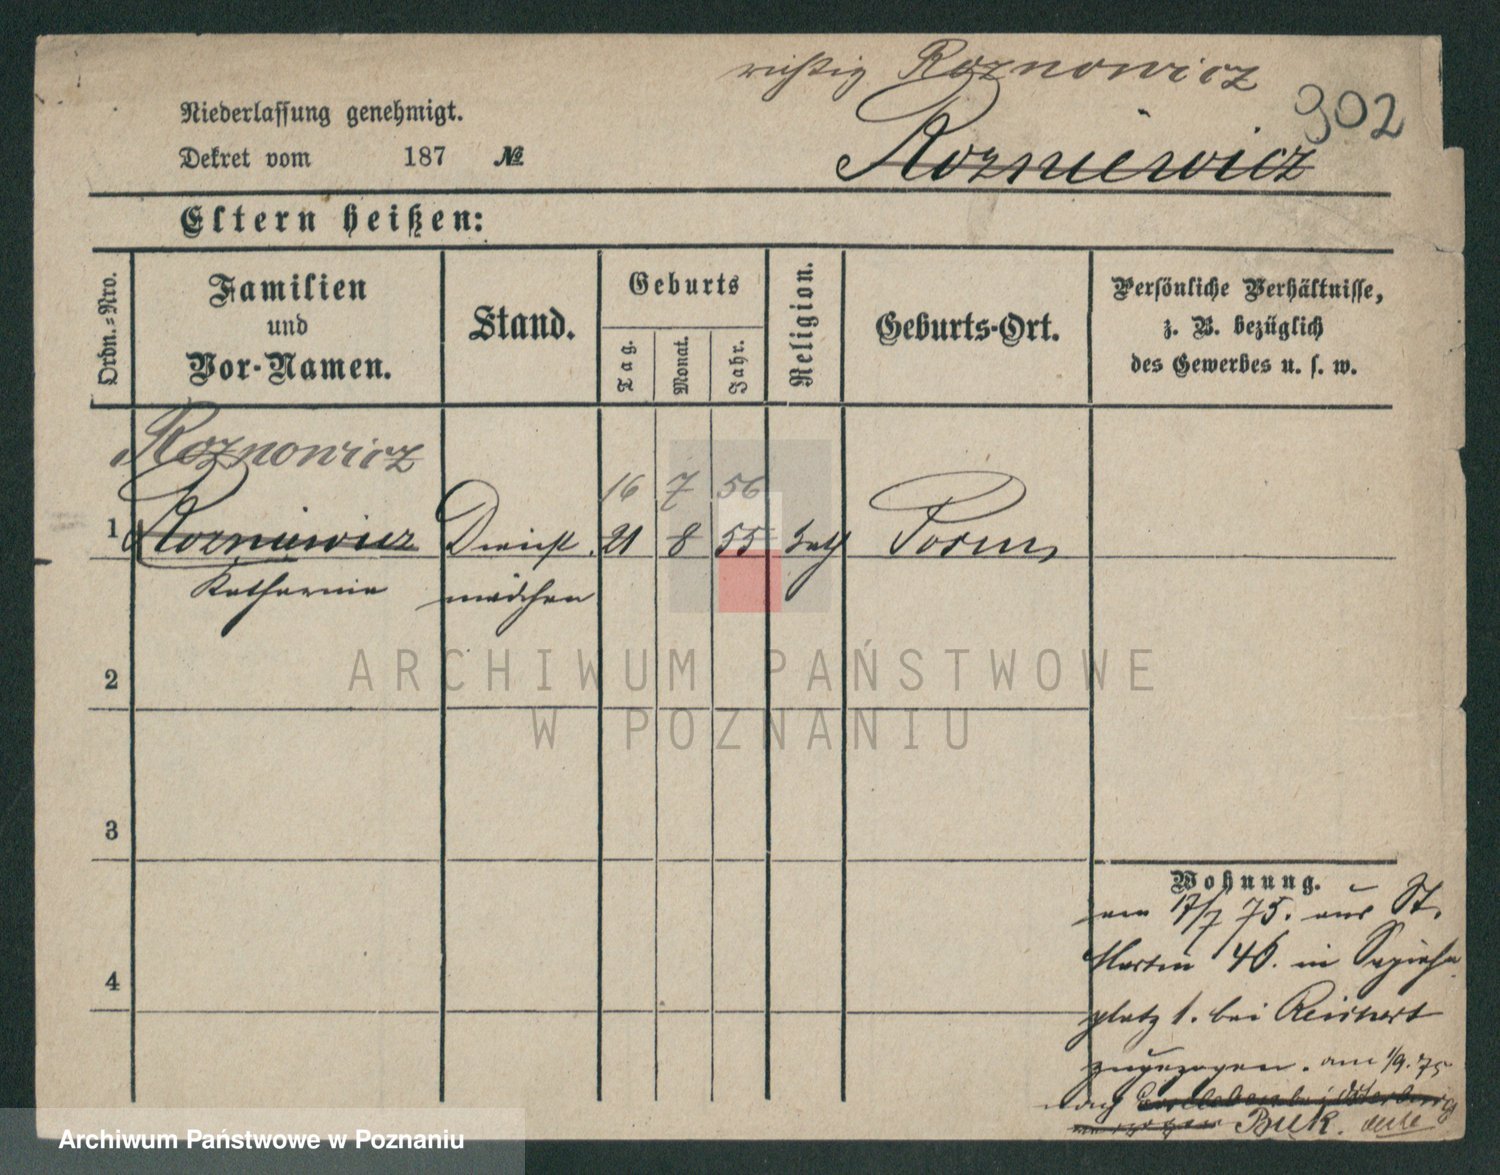 richtig Roznowicz
302
Niederlassung genehmigt.
Dekret vom 187 №
Rozniewicz
Eltern heißen:
Ordn.-Nro.
Familien
und
Vor-Namen.
Stand.
Geburts
Tag.
Monat.
Jahr.
Religion.
Geburts-Ort.
Persönliche Verhältnisse,
z. B. bezüglich
des Gewerbes u. s. w.
Roznowicz
16 7 56
1 Rozniewicz Dienst 21 8 55 kath Posen
Katharina mädchen
2
3
4
Wohnung.
am 17/7 75. aus St.
Martin 46. in Sapieha
platz 1. bei Reichert
zugezogen. am 1/9. 75
nach
Buk.
ARCHIWUM PAŃSTWOWE
W POZNANIU
Archiwum Państwowe w Poznaniu